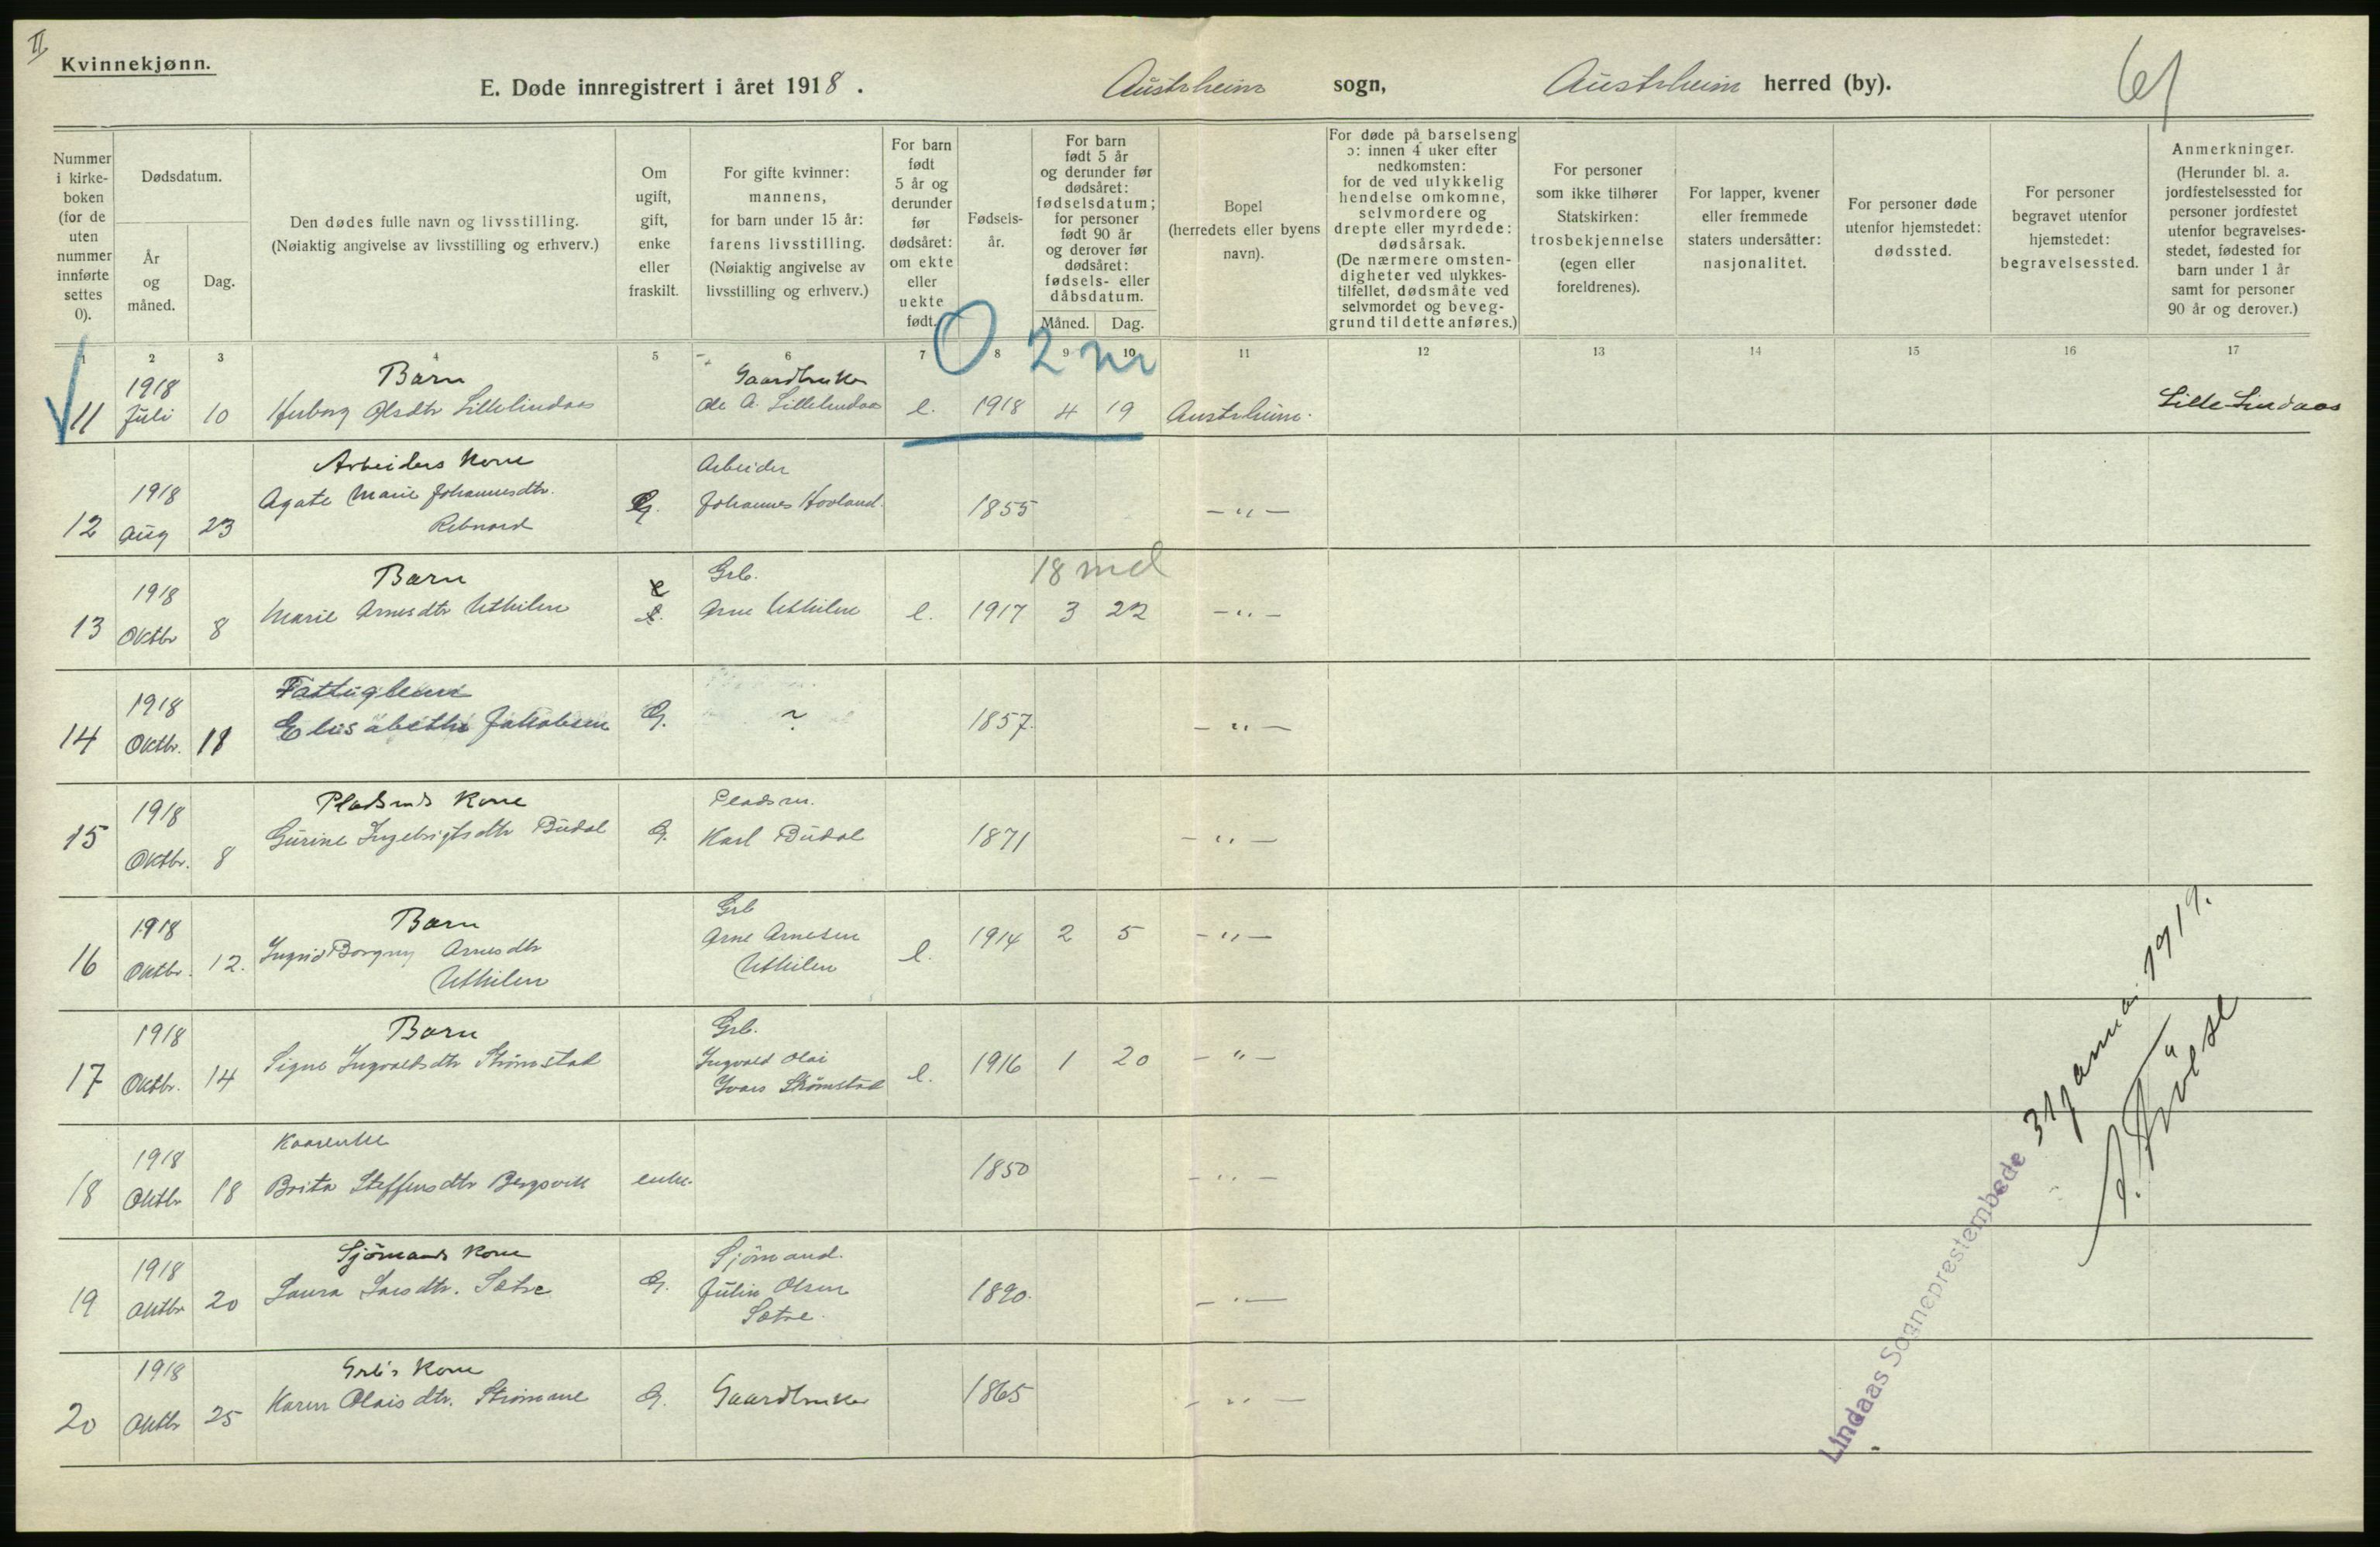 II
Kvinnekjønn.
E. Døde innregistrert i året 1918.
Austrheim sogn, Austrheim herred (by).
61
Nummer i kirke-boken (for de uten nummer innførte settes 0).
Dødsdatum.
År og måned.
Dag.
Den dødes fulle navn og livsstilling.
(Nøiaktig angivelse av livsstilling og erhverv.)
Om ugift, gift, enke eller fraskilt.
For gifte kvinner: mannens, for barn under 15 år: farens livsstilling.
(Nøiaktig angivelse av livsstilling og erhverv.)
For barn født 5 år og derunder før dødsåret: om ekte eller uekte født.
Fødsels-år.
For barn født 5 år og derunder før dødsåret: fødselsdatum; for personer født 90 år og derover før dødsåret: fødsels- eller dåbsdatum.
Måned.
Dag.
Bopel (herredets eller byens navn).
For døde på barselseng ɔ: innen 4 uker efter nedkomsten: for de ved ulykkelig hendelse omkomne, selvmordere og drepte eller myrdede: dødsårsak.
(De nærmere omsten-digheter ved ulykkes-tilfellet, dødsmåte ved selvmordet og beveg-grund til dette anføres.)
For personer som ikke tilhører Statskirken: trosbekjennelse (egen eller foreldrenes).
For lapper, kvener eller fremmede staters undersåtter: nasjonalitet.
For personer døde utenfor hjemstedet: dødssted.
For personer begravet utenfor hjemstedet: begravelsessted.
Anmerkninger.
(Herunder bl. a. jordfestelsessted for personer jordfestet utenfor begravelses-stedet, fødested for barn under 1 år samt for personer 90 år og derover.)
1 2 3 4 5 6 7 8 9 10 11 12 13 14 15 16 17
0 2 m
Barn Gaardbruker
11 1918 Juli 10 Olsdtr Lillelindaas Ole A. Lillelindaas e. 1918 4 19 Austrheim. Lille Lindaas
Arbeiders Kone Arbeider
12 1918 Aug 23 Agate Marie Johannesdtr. G. Johannes Hovland. 1855 - " -
Barn Grb. 18 md
13 1918 Oktbr 8 Marie Arnesdtr Utkilen Arne Utkilen e. 1917 3 22 - " -
Fattiglem
14 1918 Oktbr. 18 Elisabeth Jakobsen G. ? 1857. - " -
Pladsmds Kone Pladsm.
15 1918 Oktbr. 8 Gurine Ingebrigtsdtr Budal G. Karl Budal 1871 - " -
Barn Grb
16 1918 Oktbr. 12. Ingrid Borgny Arnesdtr Utkilen Arne Arnesen Utkilen e. 1914 2 5 - " -
Barn Grb.
17 1918 Oktbr. 14 Signe Ingvaldsdtr Strømstad Ingvald Olai Ivars Strømstad e. 1916 1 20 - " -
Kaarenke
18 1918 Oktbr 18 Brita Steffensdtr Bergsvik enke. 1850 - " -
Sjömands Kone Sjömand.
19 1918 Oktbr 20 Laura Larsdtr. Sætre G. Julius Olsen Sætre. 1890. - " -
Grb's Kone
20 1918 Oktbr 25 Karen Olaisdtr. Strømme G. Gaardbruker 1865 - " -
Lindaas Sogneprestembede 31 januar 1919.